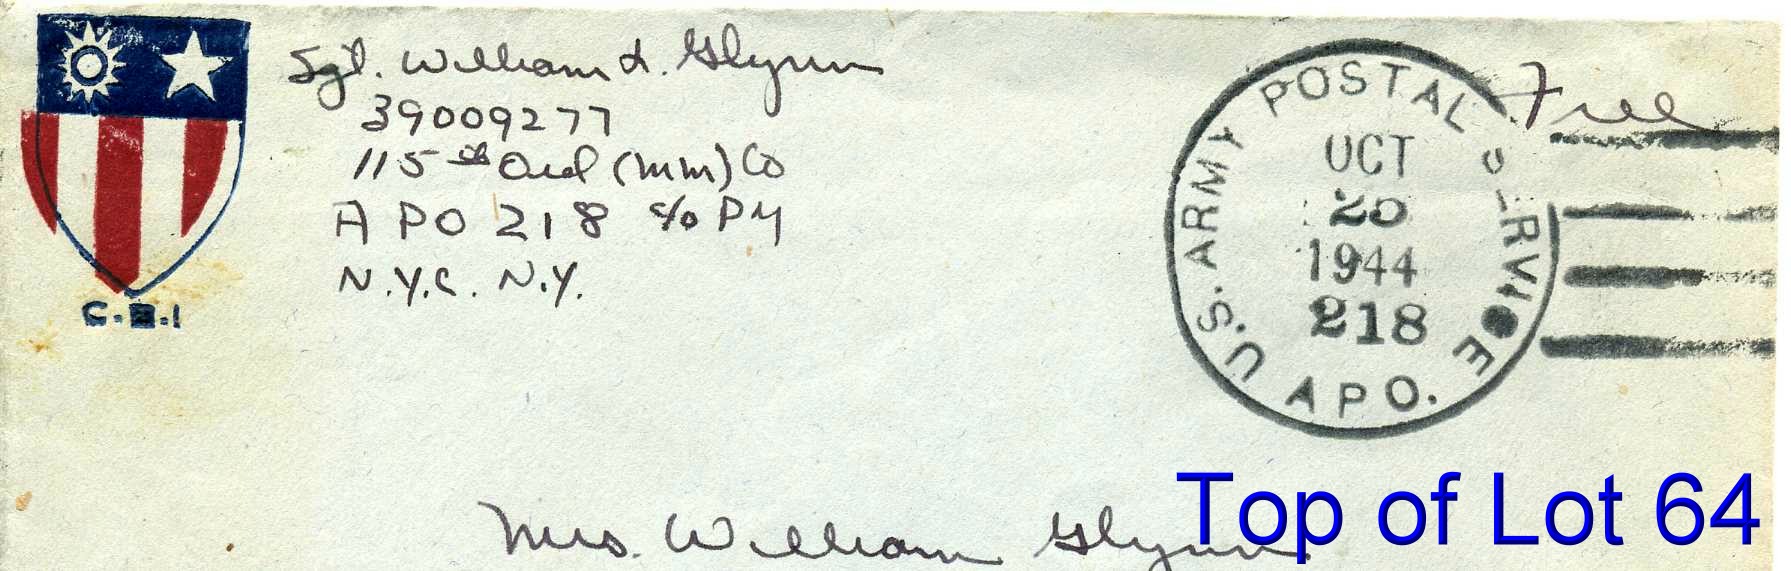 C.B.I
Sgt. William L. Glynn
39009277
115th Ord (MM) Co
APO 218 c/o PM
N.Y.C. N.Y.
Free
U.S. ARMY POSTAL SERVICE
OCT
25
1944
218
APO.
Mrs. William Glynn
Top of Lot 64